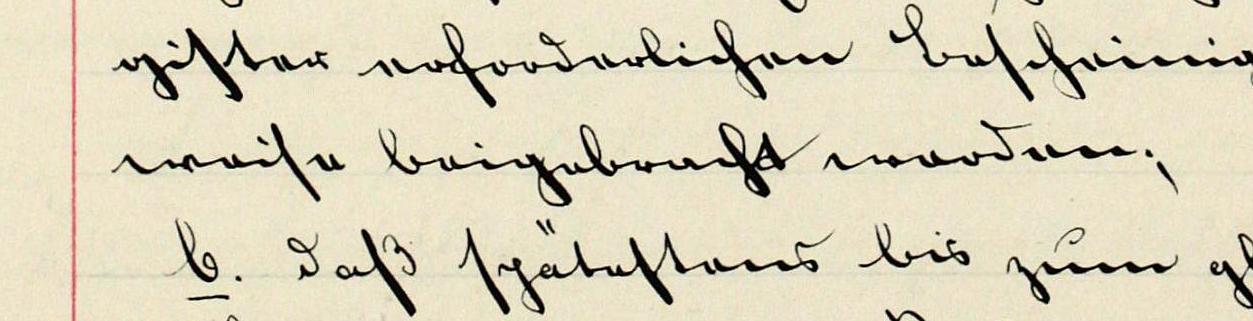 gister erforderlichen bescheinig
weise beigebracht werden;
b. daß spätestens bis zum gl